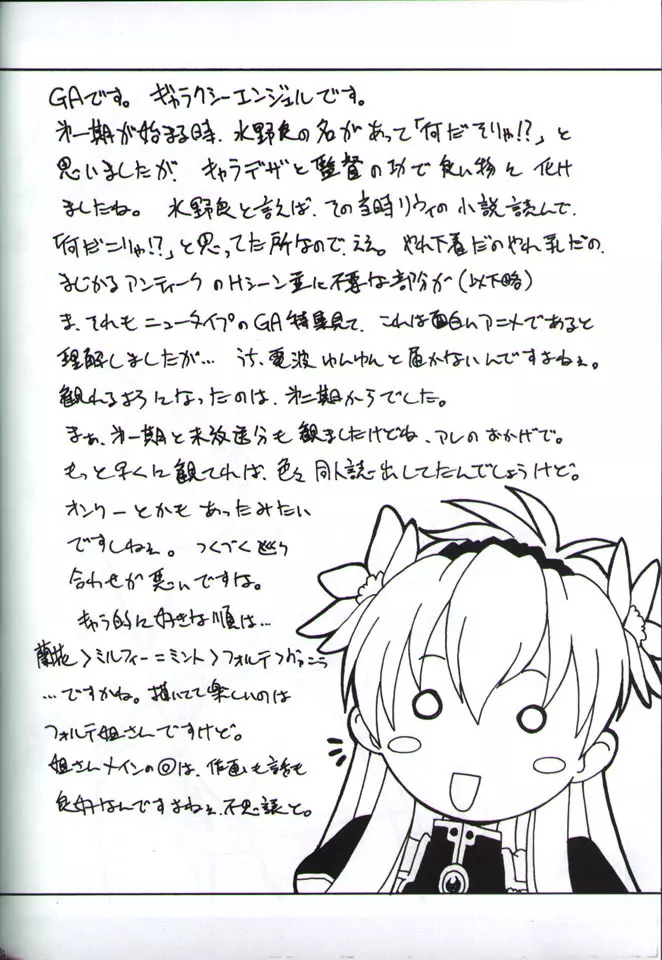 GAです。 ギャラクシーエンジェルです。
第一期が始まる時、水野良の名があって「何だそりゃ!?」と
思いましたが、キャラデザと監督の功で良い物に 化け
ましたね。 水野良と言えば、その当時リウイの小説読んで、
「何だこりゃ!?」と思ってた所なので、ええ。 やれ下着だのやれ乳だの、
まじかるアンティークのHシーン並に不要な部分が(以下略)
ま、それもニュータイプのGA特集見て、これは面白いアニメであると
理解しましたが… うち、電波ゆんゆんと届かないんですよねぇ。
観れるようになったのは、第二期からでした。
まぁ、第一期と未放送分も観ましたけどね、アレのおかげで。
もっと早くに観てれば、色々同人誌出してたんでしょうけど。
オンリーとかもあったみたい
ですしねぇ。 つくづく巡り
合わせが悪いですな。
キャラ的に好きな順は…
蘭花>ミルフィー=ミント>フォルテ>
…ですかね。描いてて楽しいのは
フォルテ姐さんですけど。
姐さんメインの回は、作画も話も
良好なんですよねぇ、不思議と。